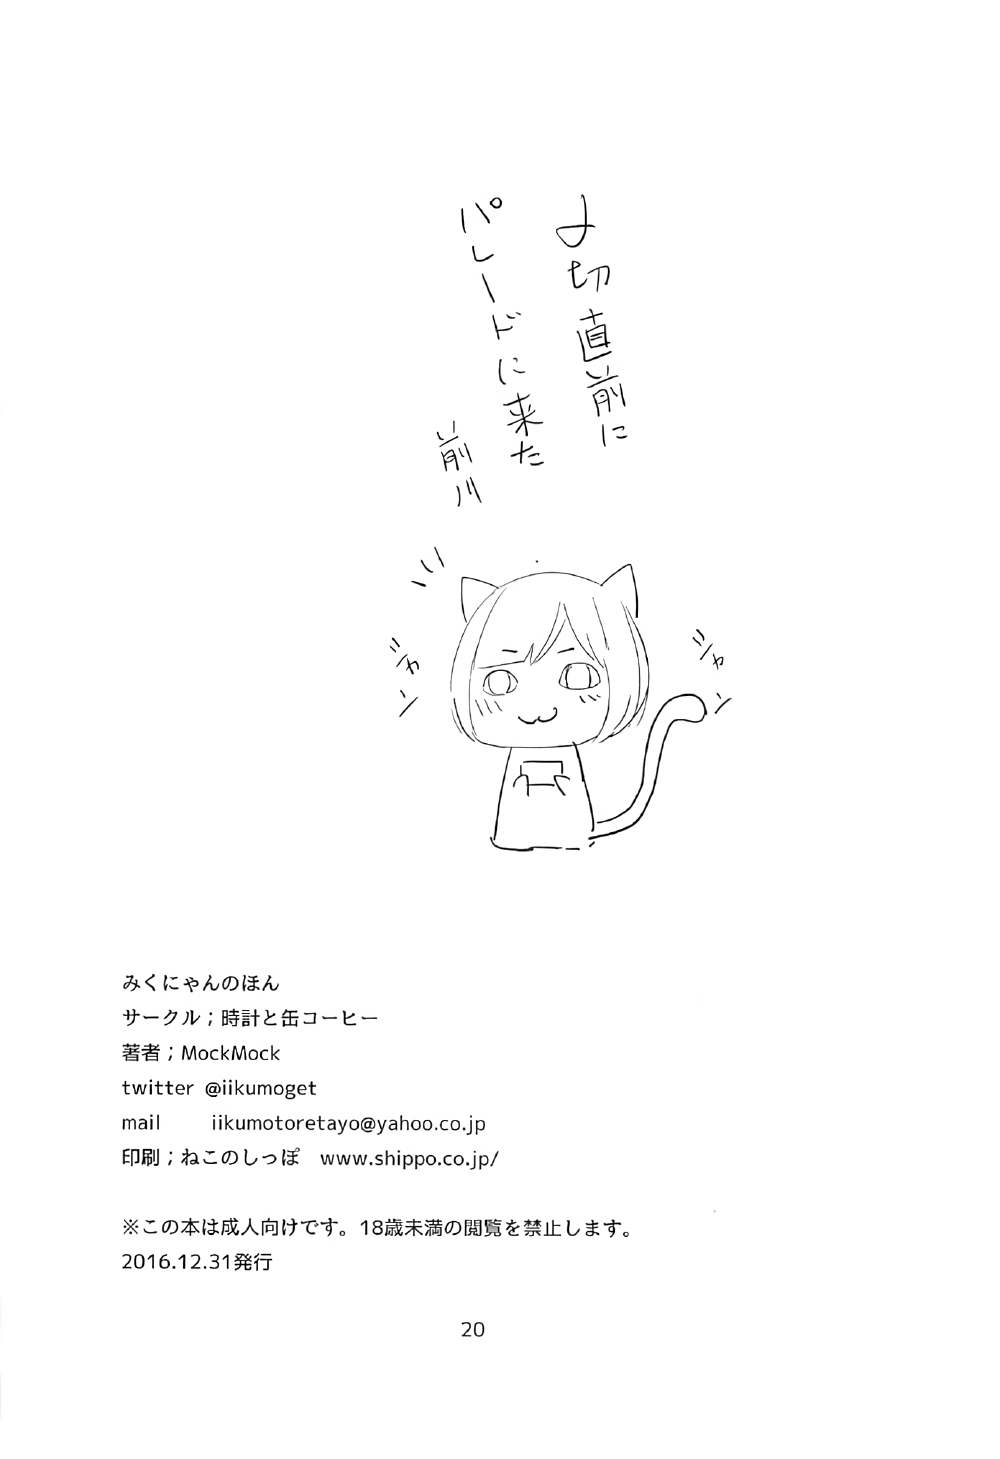 〆切直前に
パレードに来た
前川
シャン
シャン
みくにゃんのほん
サークル；時計と缶コーヒー
著者；MockMock
twitter @iikumoget
mail iikumotoretayo@yahoo.co.jp
印刷；ねこのしっぽ www.shippo.co.jp/
※この本は成人向けです。18歳未満の閲覧を禁止します。
2016.12.31発行
20